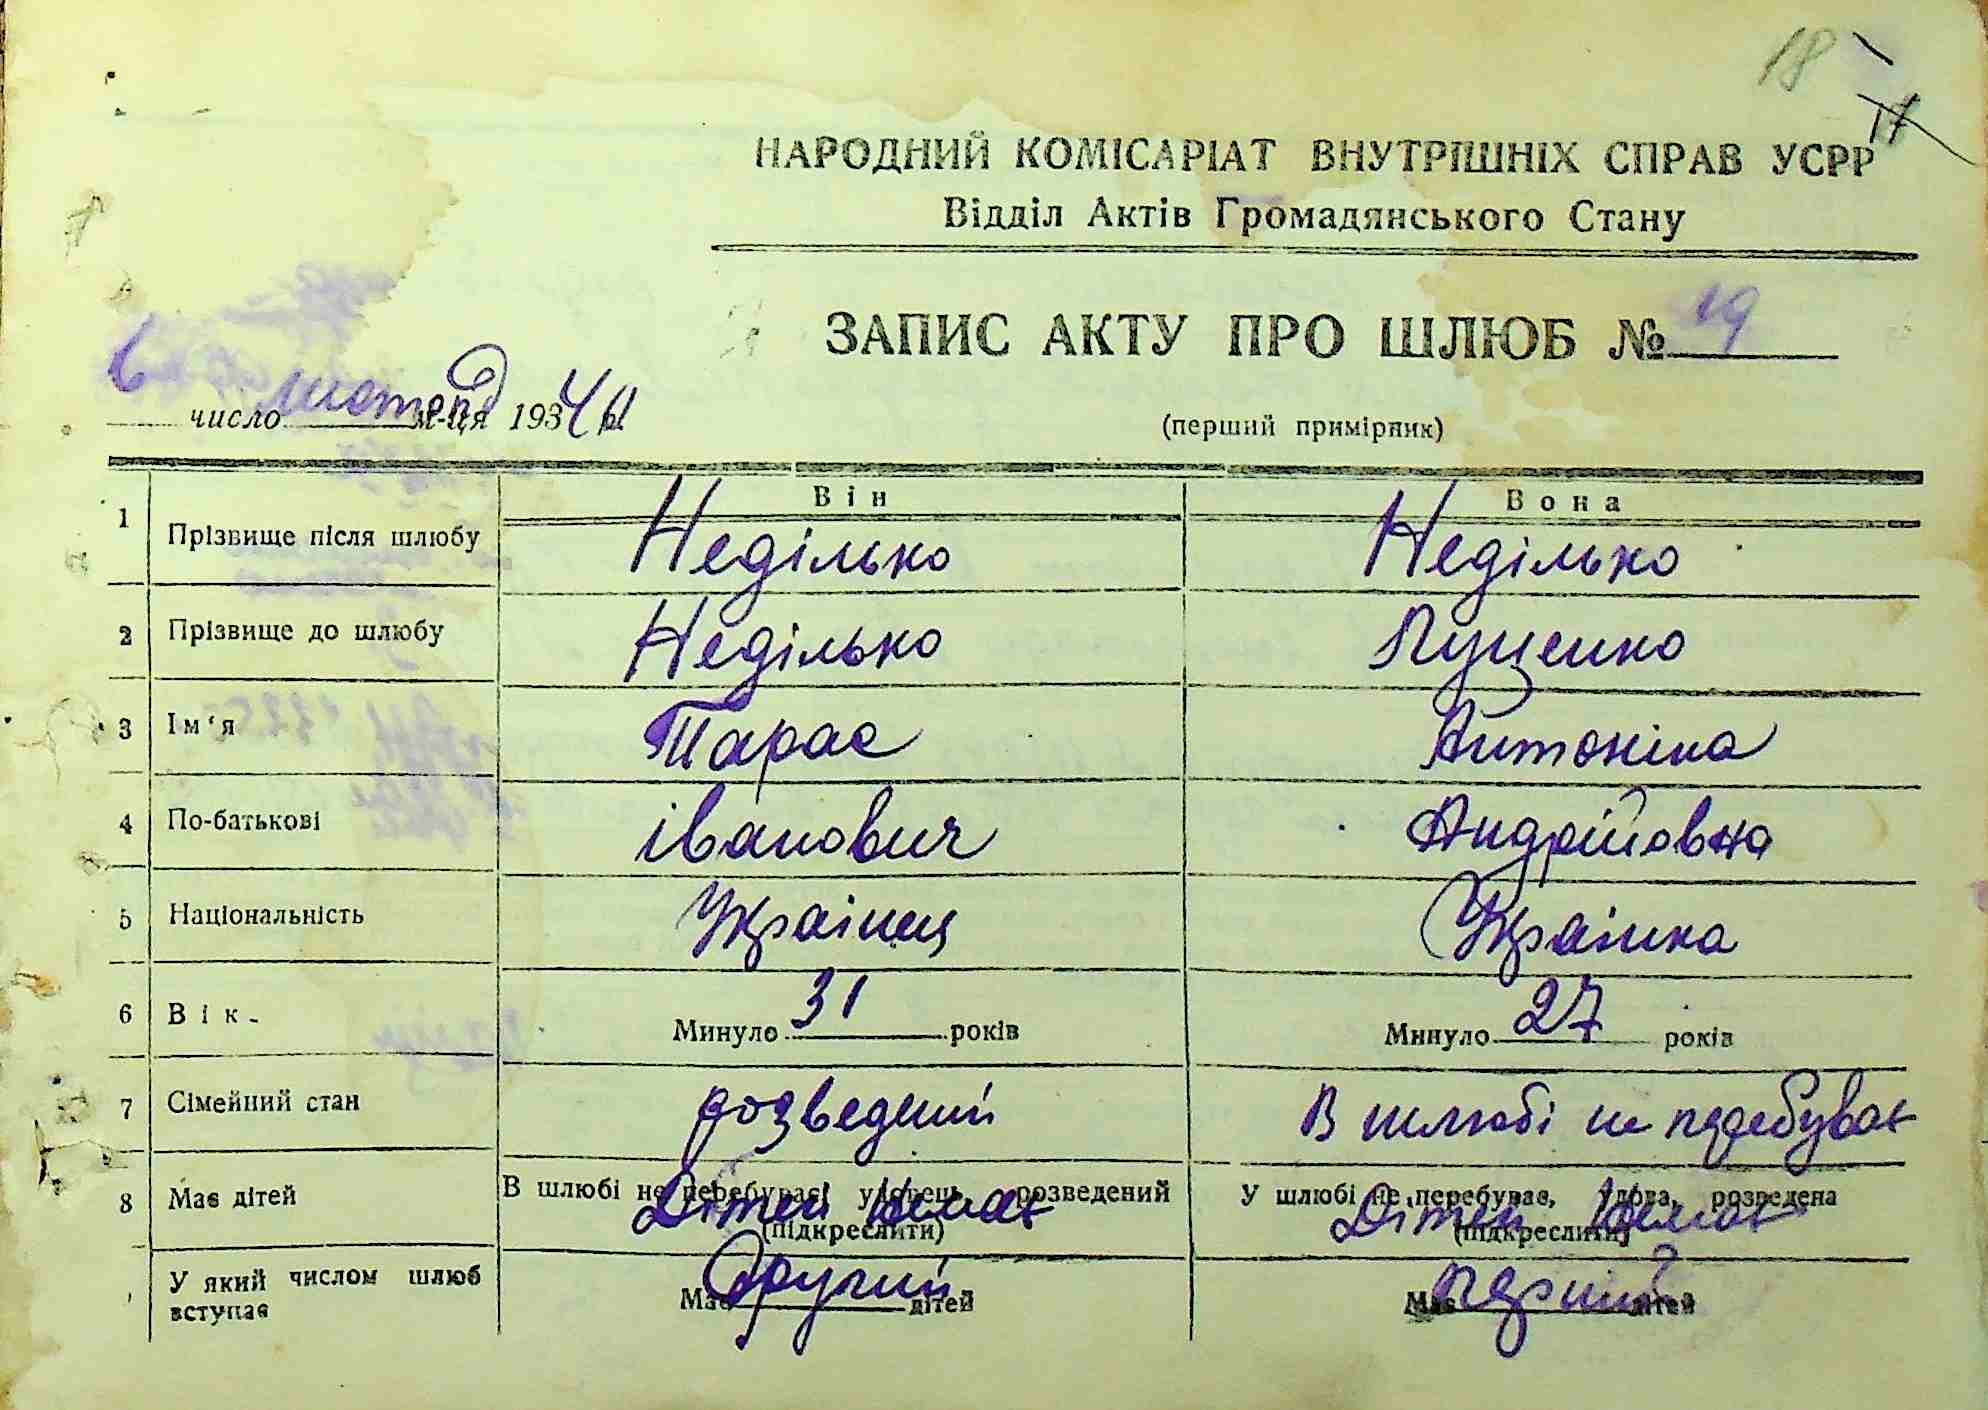 18
НАРОДНИЙ КОМІСАРІАТ ВНУТРІШНІХ СПРАВ УСРР
Відділ Актів Громадянського Стану
ЗАПИС АКТУ ПРО ШЛЮБ № 19
6 число листопад м-ця 1934
(перший примірник)
Він Вона
1 Прізвище після шлюбу Неділько Неділько
2 Прізвище до шлюбу Неділько Луценко
3 Ім'я Тарас Антоніна
4 По-батькові Іванович Андрійовна
5 Національність Українец Українка
6 Вік. Минуло 31 років Минуло 27 років
7 Сімейний стан розведений В шлюбі не перебуває
8 Має дітей Дітей немає Дітей немає
В шлюбі не перебуває, удовець, розведений У шлюбі не перебуває, удова, розведена
(підкреслити) (підкреслити)
У який числом шлюб вступає Другий Перший
Має дітей Має дітей